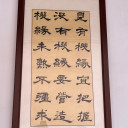 見有機緣宜把握
沒有機緣要營造
機緣未熟不強求